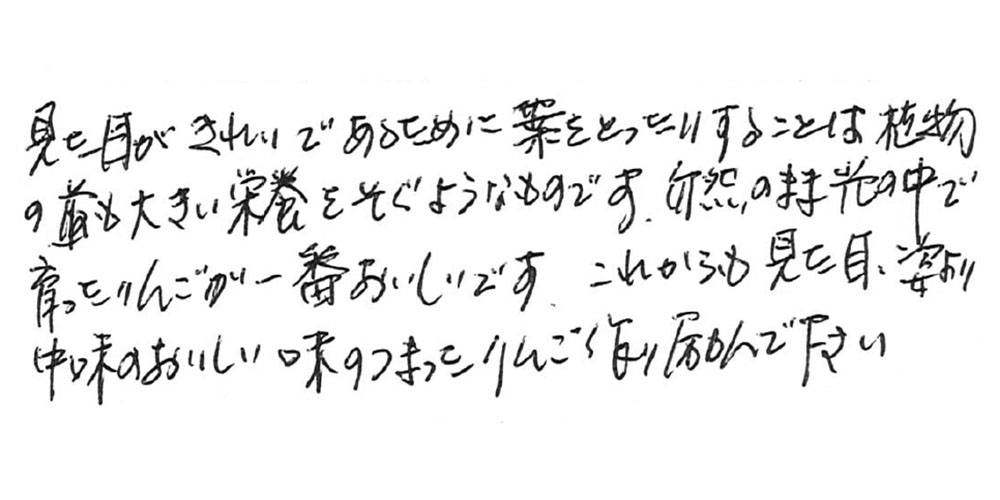 見た目がきれいであるために葉をとったりすることは植物
の最も大きい栄養をそぐようなものです.自然のまま光の中で
育ったりんごが一番おいしいです.これからも見た目、姿より
中味のおいしい味のつまったりんご作り励んで下さい